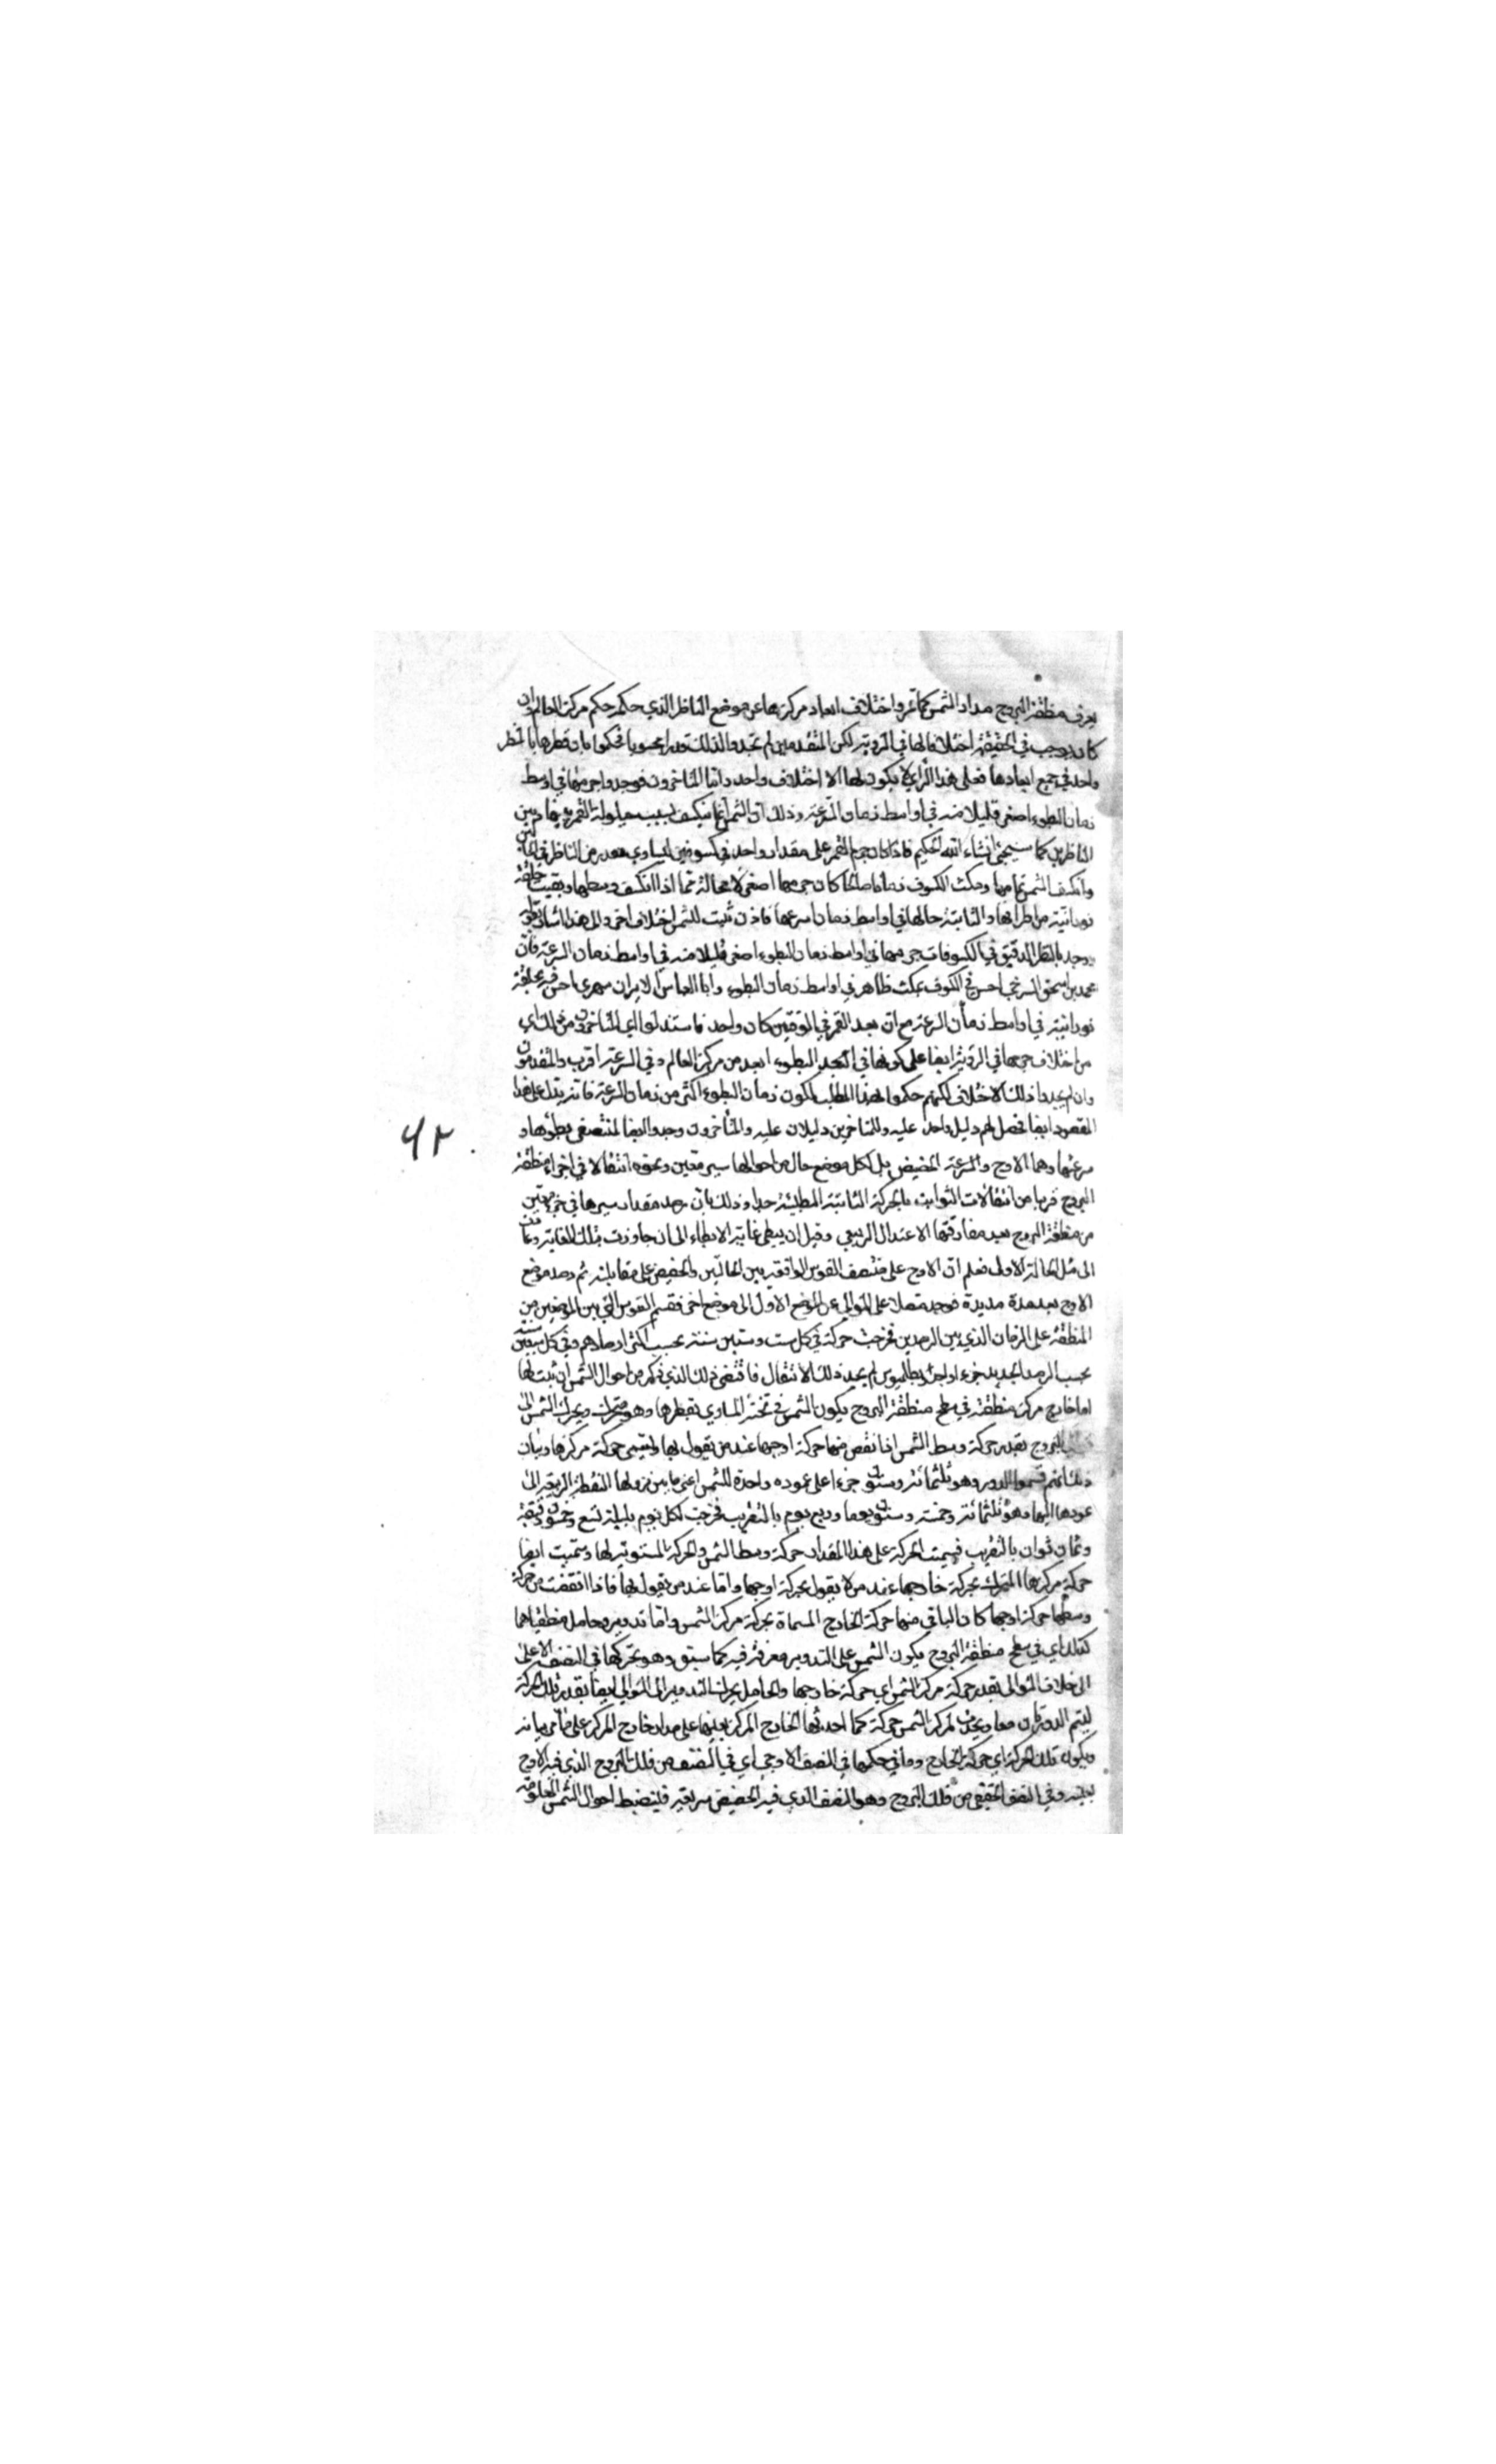 يعرف منطقة البروج مدار الشمس كما مر واختلاف ابعاد مركزها عن موضع الناظر الذي حكمه حكم مركز العالم وان
كان يوجب في الحقيقة اختلافا لها في الرؤية لكن المتقدمين لم يجدوا لذلك قدرا محسوسا فحكموا بان قطرها بالنظر
واحد في جميع ابعادها فعلى هذا الرأي لا يكون لها الا اختلاف واحد واما المتأخرون فوجدوا جرمها في اوسط
زمان البطوء اصغر قليلا منه في اواسط زمان السرعة وذلك ان الشمس انما ينكسف بسبب حيلولة القمر بينها وبين
الناظرين كما سيجئ انشاء الله الحكيم فاذا كان جرم القمر على مقدار واحد في كسوفين لتساوي بعده من الناظر
وانكسف الشمس بتمامها ومكث الكسوف زمانا صالحا كان جرمها اصغر لا محالة مما اذا انكسف وسطها وبقيت حلقة
نورانية من اطرافها والثانية حالها في اواسط زمان اسرعها فاذن ثبت للشمس اختلاف اخر والى هذا اشار بقوله
ووجد بالنظر الدقيق في الكسوفات جرمها في اواسط زمان البطوء اصغر قليلا منه في اواسط زمان السرعة فان
محمد بن اسحق السرخسي احس في الكسوف بمكث ظاهر في اواسط زمان البطوء وابا العباس الايرانشهري احس فيه بحلقة
نورانية في اواسط زمان السرعة مع ان بعد القمر في الوقتين كان واحدا فاستدلوا اي المتأخرون من ذلك اي
من اختلاف جرمها في الرؤية ايضا على كونها في البطوء ابعد من مركز العالم وفي السرعة اقرب والمتقدمون
وان لم يجدوا ذلك الاختلاف لكنهم حكموا بهذا المطلب لكون زمان البطوء اكثر من زمان السرعة فانه يدل على هذا
المقصود ايضا فحصل لهم دليل واحد عليه وللمتاخرين دليلان عليه والمتأخرون وجدوا ايضا لمنتصفي بطوئها و
سرعتها وهما الاوج والحضيض بل لكل موضع حال من احوالها سير معين ونحوه انتقالا في اجزاء منطقة
البروج قريبا من انتقالات الثوابت بالحركة الثانية البطيئة جدا وذلك بان رصد مقدار سيرها في جزء معين
من منطقة البروج بعد مفارقتها الاعتدال الربيعي وقبل ان يبطئ غاية الابطاء الى ان جاوزت تلك الغاية وعادت
الى مثل الحالة الاولى فعلم ان الاوج على منتصف القوس الواقعة بين الحالتين والحضيض على مقابلته ثم رصد موضع
الاوج بعد مدة مديدة فوجد منتقلا على التوالي عن الموضع الاول الى موضع اخر فقسم القوس التي بين الموضعين من
المنطقة على الزمان الذي بين الرصدين فخرجت حركة في كل ست وستين سنة بحسب اكثر ارصادهم وفي كل سبعين سنة
بحسب الرصد الجديد جزءا واحدا وبطلميوس لم يجد ذلك الانتقال فاقتضى ذلك الذي ذكر من احوال الشمس ان ثبت لها
اما خارج مركز منطقته في سطح منطقة البروج يكون الشمس في ثخنه المساوي لقطرها وهو متحرك ويحرك الشمس الى
البروج بقدر حركة وسط الشمس اذا نقص منها حركة اوجها عند من يقول بها ويسمى حركة مركزها وبيان
ذلك انهم قسموا الدور وهو ثلثمائة وستون جزءا على عوده واحدة للشمس اعني ما بين نزولها النقطة الربيعية الى
عودها اليها وهو ثلثمائة وخمسة وستون يوما وربع يوم بالتقريب فخرجت لكل يوم بليلة تسع وخمسون دقيقة
وثمان ثوان بالتقريب فسميت الحركة على هذا المقدار حركة وسط الشمس والحركة المستوية لها وسميت ايضا
حركة مركزها المتحرك بحركة خارجها عند من لا يقول بحركة اوجها واما عند من يقول بها فاذا انتقصت من حركة
وسطها حركة اوجها كان الباقي منها حركة الخارج المسماة بحركة مركز الشمس واما تدوير وحامل منطقتاهما
كذلك اي في سطح منطقة البروج يكون الشمس على التدوير مغرقة فيه كما سبق وهو يحركها في النصف الاعلى
الى خلاف التوالي بقدر حركة مركز الشمس اي حركة خارجها والحامل يحرك التدوير الى التوالي ايضا بقدر تلك الحركة
ليتم الدورتان معا ويحدث لمركز الشمس حركة كما احدثها الخارج المركز بعينها على مدار خارج المركز على ما مر بيانه
ويكون تلك الحركة اي حركة الخارج وما في حكمها في النصف الاوجي اي في النصف من فلك البروج الذي فيه الاوج
بطيئة وفي النصف الحضيضي من فلك البروج وهو النصف الذي فيه الحضيض سريعة فينضبط احوال الشمس المعلومة
٦٢